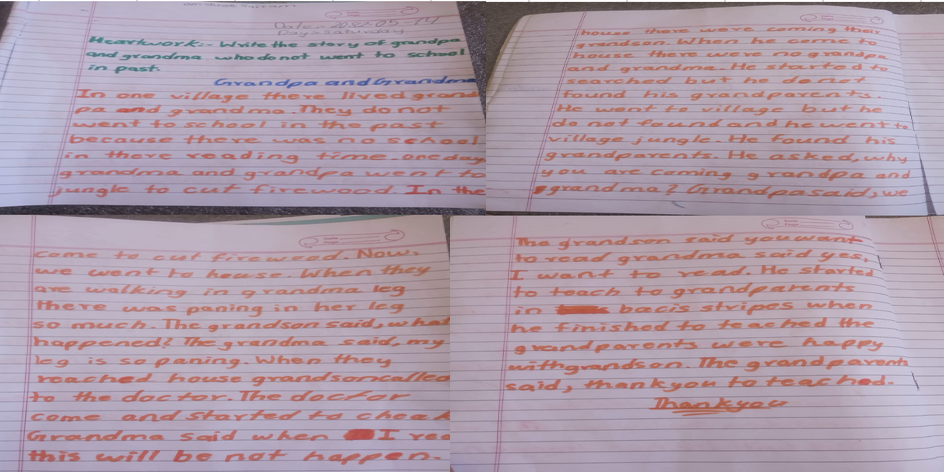 Day = Saturday
Heartwork:- Write the story of grandpa
and grandma who do not went to school
in past.
Grandpa and Grandma
In one village there lived grand
pa and grandma. They do not
went to school in the past
because there was no school
in there reading time. one day
grandma and grandpa went to
jungle to cut firewood. In the
house there were coming their
grandson. When he come to
house there were no grandpa
and grandma. He started to
searched but he do not
found his grandparents.
He went to village but he
do not found and he went to
village jungle. He found his
grandparents. He asked, why
you are coming grandpa and
grand ma? Grandpa said, we
come to cut firewood. Now,
we went to house. When they
are walking in grandma leg
there was paning in her leg
so much. The grandson said, what
happened? The grandma said, my
leg is so paning. When they
reached house grandson called
to the doctor. The doctor
come and started to check
Grandma said when I rea
this will be not happen.
The grandson said you want
to read grandma said yes,
I want to read. He started
to teach to grandparents
in bacis stvipes when
he finished to teached the
grandparents were happy
with grandson. The grandparents
said, thankyou to teached.
Thankyou